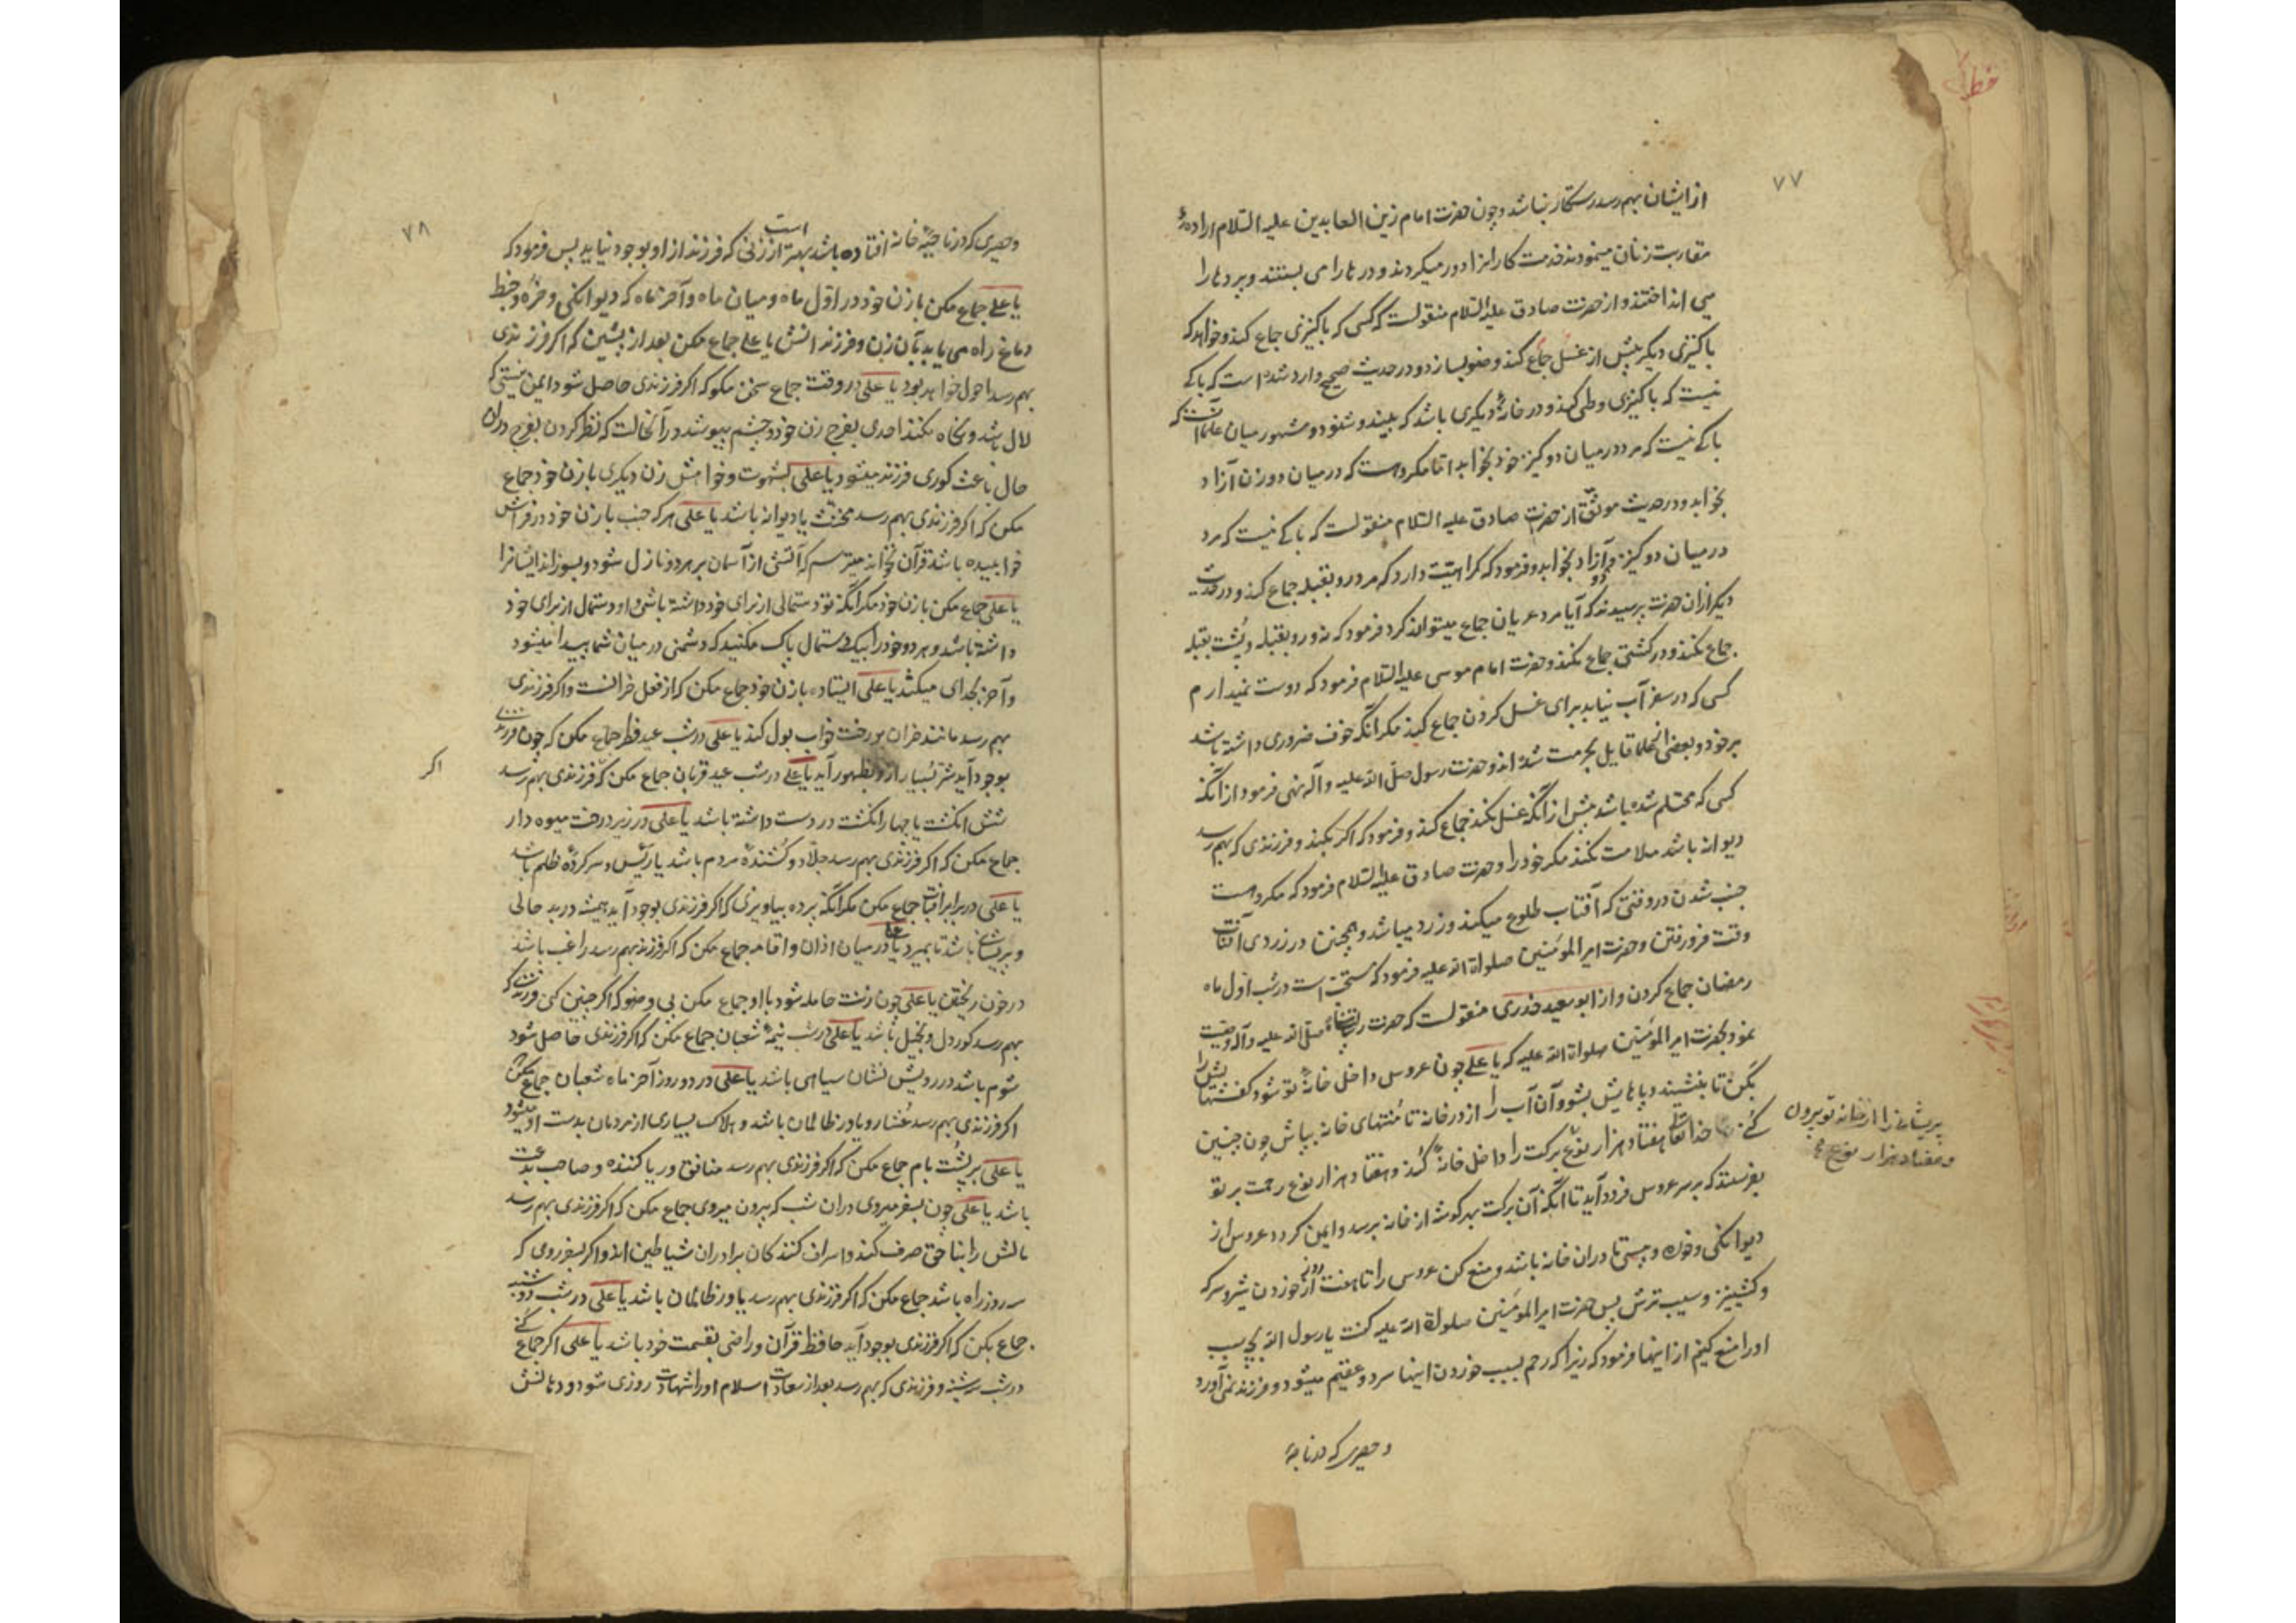 ۷۷
از ایشان بهم رسد رستکار نباشد و چون حضرت امام زین العابدین علیه السلام ارادهٔ
مقاربت زنان مینمودند خدمت کارانرا دور میکردند و درها را می بستند و پردها را
می انداختند و از حضرت صادق علیه السلام منقولست که کسی که با کنیزی جماع کند و خواهد که
با کنیزی دیکر پیش از غسل جماع کند وضو بسازد و در حدیث صحیح وارد شده است که باکی
نیست که با کنیزی وطی کند و در خانهٔ دیکری باشد که ببیند و شنود و مشهور میان علما آنست که
باکی نیست که مرد در میان دو کنیز خود بخوابد اما مکروهست که در میان دو زن آزاد
بخوابد و در حدیث موثق از حضرت صادق علیه السلام منقولست که باکی نیست که مرد
در میان دو کنیز و دو آزاد بخوابد و فرمود که کراهیت دارد که مرد رو بقبله جماع کند و در حدیث
دیکر از ان حضرت پرسیدند که آیا مرد عریان جماع میتواند کرد فرمود که نه و رو بقبله و پشت بقبله
جماع نکند و در کشتی جماع نکند و حضرت امام موسی علیه السلام فرمود که دوست نمیدارم
کسی که در سفر آب نیابد برای غسل کردن جماع کند مکر آنکه خوف ضروری داشته باشد
بر خود و بعضی از علما قایل بحرمت شده اند و حضرت رسول صلی الله علیه و آله نهی فرمود از آنکه
کسی که محتلم شده باشد پیش از آنکه غسل بکند جماع کند و فرمود که اکر بکند و فرزندی که بهم رسد
دیوانه باشد ملامت نکند مکر خود را و حضرت صادق علیه السلام فرمود که مکروهست
جنب شدن در وقتی که آفتاب طلوع میکند و زرد میباشد و همچنین در زردی آفتاب
وقت فرو رفتن و حضرت امیر المؤمنین صلواة الله علیه فرمود که مستحبست در شب اول ماه
رمضان جماع کردن و از ابو سعید خدری منقولست که حضرت رسالتپناه صلی الله علیه و آله وصیت
نمود بحضرت امیر المؤمنین صلواة الله علیه که یا علی چون عروس داخل خانهٔ تو شود کفشهایش را
بکن تا بنشیند و پاهایش بشو و آن آب را از در خانه تا منتهای خانه بپاش چون چنین
کنی خدا تعالی هفتاد هزار نوع برکت را داخل خانه کند و هفتاد هزار نوع رحمت بر تو
پریشانی را از خانه تو بیرون
و هفتاد هزار نوع
بفرستد که بر سر عروس فرود آید تا آنکه آن برکت بهر کوشه از خانه برسد و ایمن کردد عروس از
دیوانکی و خوره و پیسی تا دران خانه باشد و منع کن عروس را تا هفت روز از خوردن شیر و سرکه
و کشنیز و سیب ترش پس حضرت امیر المؤمنین صلواة الله علیه کفت یا رسول الله بچه سبب
او را منع کنیم از اینها فرمود که زیرا که رحم بسبب خوردن اینها سرد و عقیم میشود و فرزند نمی آورد
و حصیری که در ناحیهٔ
۷۸
و حصیری که در ناحیهٔ خانه افتاده باشد بهتر است از زنی که فرزند از او بوجود نیاید پس فرمود که
یا علی جماع مکن با زن خود در اول ماه و میان ماه و آخر ماه که دیوانکی و خوره و خبط
دماغ راه می یابد بآن زن و فرزندانش یا علی جماع مکن بعد از پشین که اکر فرزندی
بهم رسد احول خواهد بود یا علی در وقت جماع سخن مکو که اکر فرزندی حاصل شود ایمن نیستی که
لال باشد و نکاه نکند احدی بفرج زن خود و چشم بپوشد در آنحالت که نظر کردن بفرج دران
حال باعث کوری فرزند میشود یا علی بشهوت و خواهش زن دیکری با زن خود جماع
مکن که اکر فرزندی بهم رسد مخنث یا دیوانه باشد یا علی هر که جنب با زن خود در فراش
خوابیده باشد قرآن نخواند میترسم که آتشی از آسمان بر هر دو نازل شود و بسوزاند ایشانرا
یا علی جماع مکن با زن خود مکر آنکه تو دستمالی از برای خود داشته باشی و او دستمالی از برای خود
داشته باشد و هر دو خود را بیک دستمال پاک مکنید که دشمنی در میان شما پیدا میشود
و آخر بجدای میکشد یا علی ایستاده با زن خود جماع مکن که از فعل خرانست و اکر فرزندی
بهم رسد مانند خران بر رخت خواب بول کند یا علی در شب عید فطر جماع مکن که چون فرزندی
بوجود آید شر بسیار از او بظهور آید یا علی در شب عید قربان جماع مکن که فرزندی بهم رسد
اکر
شش انکشت یا چهار انکشت در دست داشته باشد یا علی در زیر درخت میوه دار
جماع مکن که اکر فرزندی بهم رسد جلاد و کشندهٔ مردم باشد یا رئیس و سرکردهٔ ظلم باشد
یا علی در برابر افتاب جماع مکن مکر آنکه پرده بیاویزی که اکر فرزندی بوجود آید همیشه در بد حالی
و پریشانی باشد تا بمیرد یا علی در میان اذان و اقامه جماع مکن که اکر فرزند بهم رسد راغب باشد
در خون ریختن یا علی چون زنت حامله شود با او جماع مکن بی وضو که اکر چنین کنی فرزندی که
بهم رسد کوردل و بخیل باشد یا علی در شب نیمهٔ شعبان جماع مکن که اکر فرزندی حاصل شود
شوم باشد در رویش نشان سیاهی باشد یا علی در دو روز آخر ماه شعبان جماع مکن
اکر فرزندی بهم رسد عشار و یاور ظالمان باشد و هلاک بسیاری از مردمان بدست او میشود
یا علی بر پشت بام جماع مکن که اکر فرزندی بهم رسد منافق و ریا کننده و صاحب بدعت
باشد یا علی چون بسفر میروی دران شب که بیرون میروی جماع مکن که اکر فرزندی بهم رسد
مالش را بناحق صرف کند و اسراف کنندکان برادران شیاطین اند و اکر بسفر روی که
سه روز راه باشد جماع مکن که اکر فرزندی بهم رسد یاور ظالمان باشد یا علی در شب دوشنبه
جماع بکن که اکر فرزندی بوجود آید حافظ قرآن و راضی بقسمت خود باشد یا علی اکر جماع کنی
در شب سه شنبه و فرزندی که بهم رسد بعد از سعادت اسلام او را شهادت روزی شود و دهانش